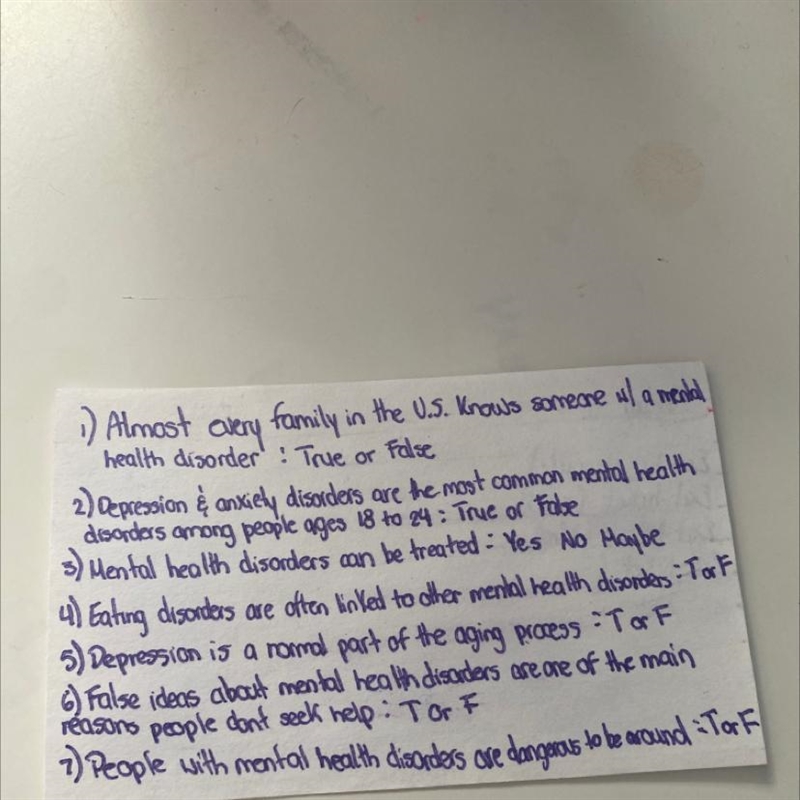 1) Almost every family in the U.S. knows someone w/ a mental
health disorder : True or False
2) Depression & anxiety disorders are the most common mental health
disorders among people ages 18 to 24 : True or False
3) Mental health disorders can be treated : Yes No Maybe
4) Eating disorders are often linked to other mental health disorders : T or F
5) Depression is a normal part of the aging process : T or F
6) False ideas about mental health disorders are one of the main
reasons people dont seek help : T or F
7) People with mental health disorders are dangerous to be around : T or F